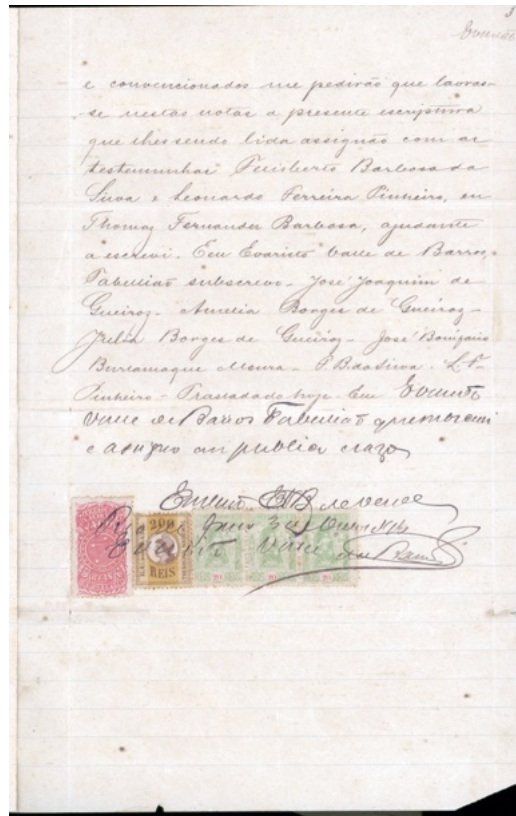 3
Evaristo
e convencionados me pedirão que lavras-
se nestas notas a presente escriptura
que lhes sendo lida assignão com as
testemunhas Felisberto Barbosa da
Silva e Leonardo Ferreira Pinheiro, eu
Thomaz Fernandes Barbosa, ajudante
a escrevi. Eu Evaristo Valle de Barros,
Tabellião subscrevo - José Joaquim de
Gueiroz - Amelia Borges de Gueiroz -
Julia Borges de Gueiroz - José Bonifacio
Burlamaque Moura - F B da Silva - L. F.
Pinheiro - Trasladado hoje - Eu Evaristo
Valle de Barros Tabellião
e assigno em publico e razo
Em
200
REIS
REIS 20 REIS
Evaristo Valle de Barros